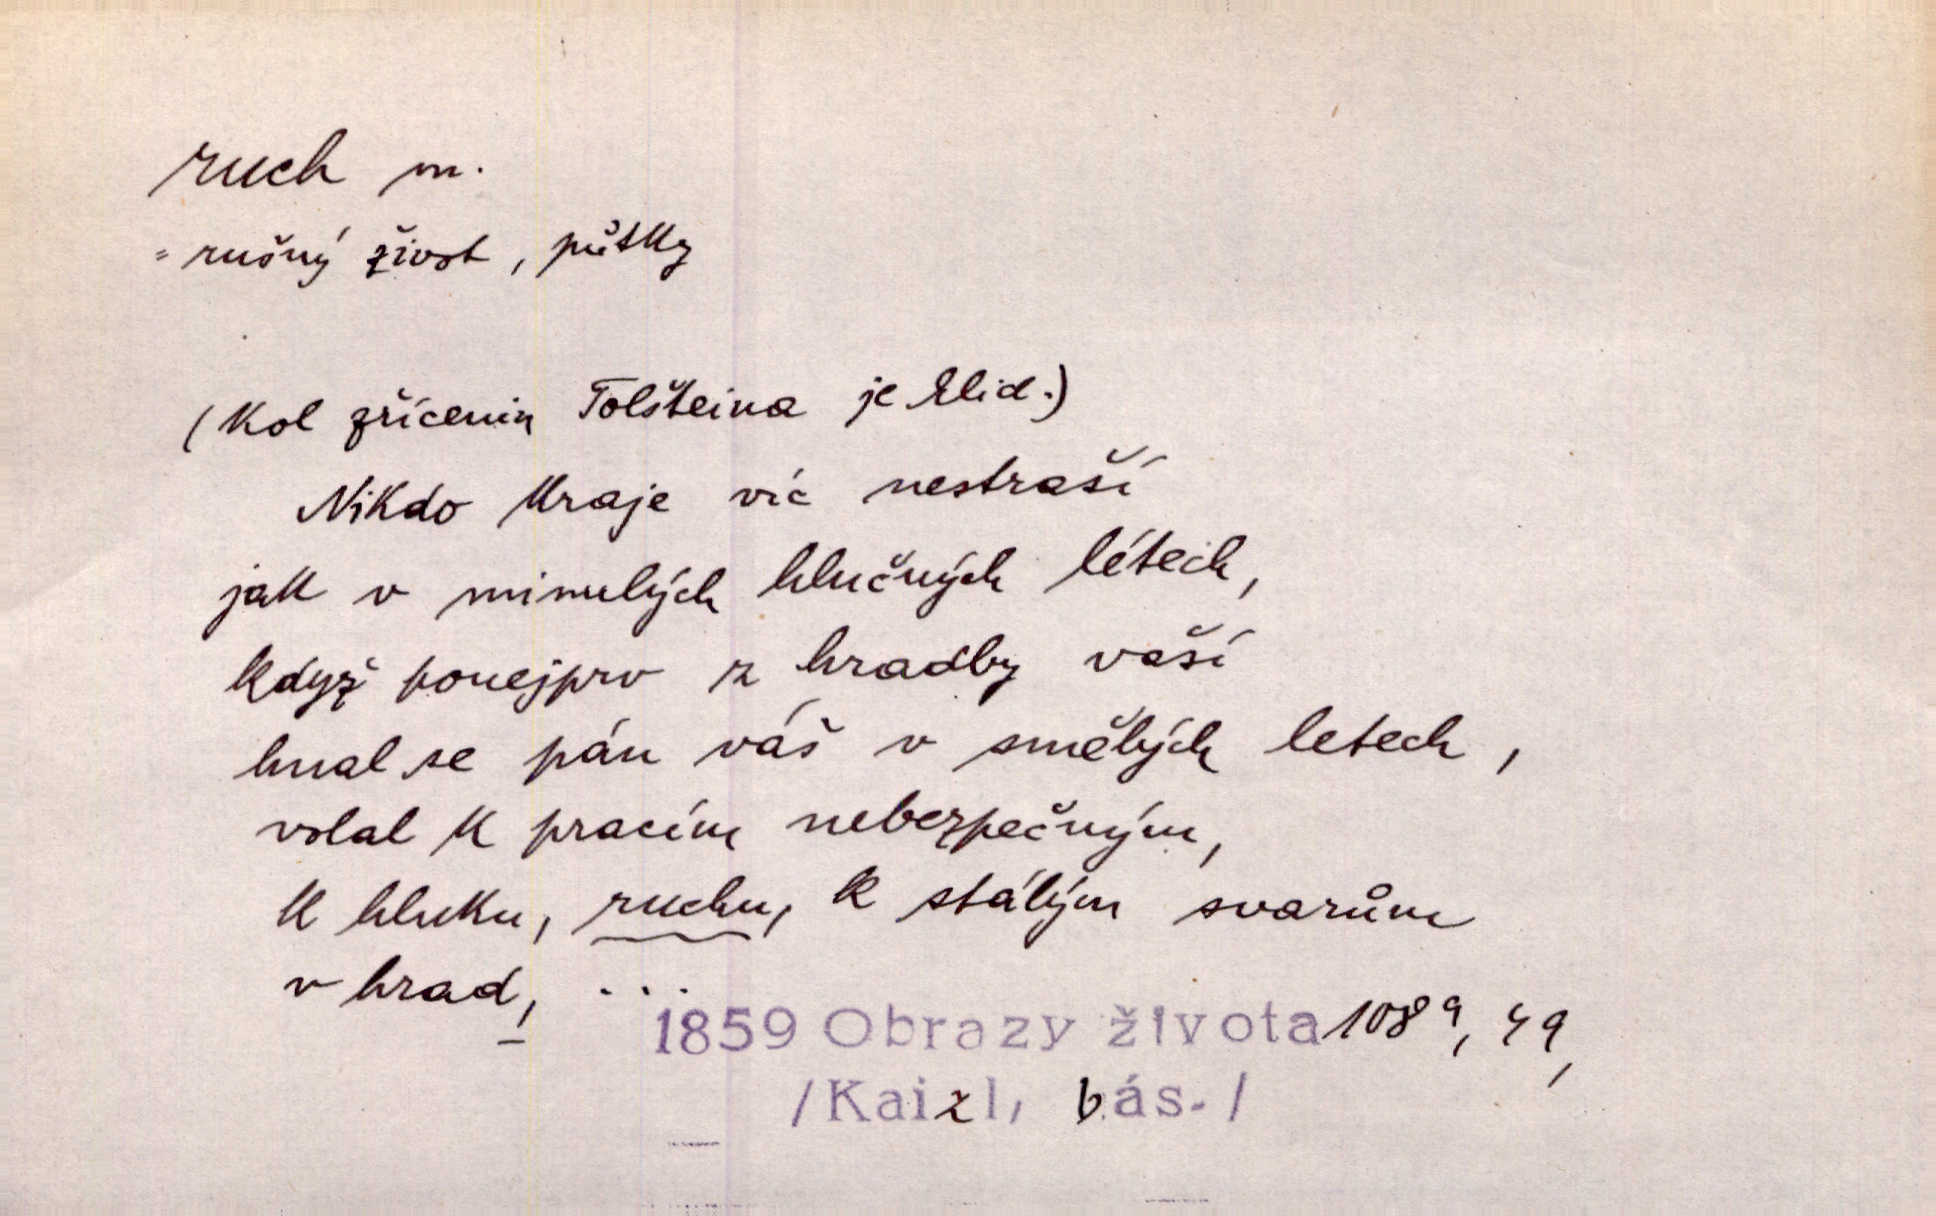 ruch m.
= rušný život, půtky
(Kol zřícenin Tolšteina je klid.)
Nikdo kraje víc nestraší
jak v minulých hlučných létech,
když ponejprv z hradby vaší
hnal se pán váš v smělých letech,
volal k pracím nebezpečným,
k hluku, ruchu, k stálým svarům
v hrad, ...
1859 Obrazy života 108 a, 49,
/Kaizl, bás./